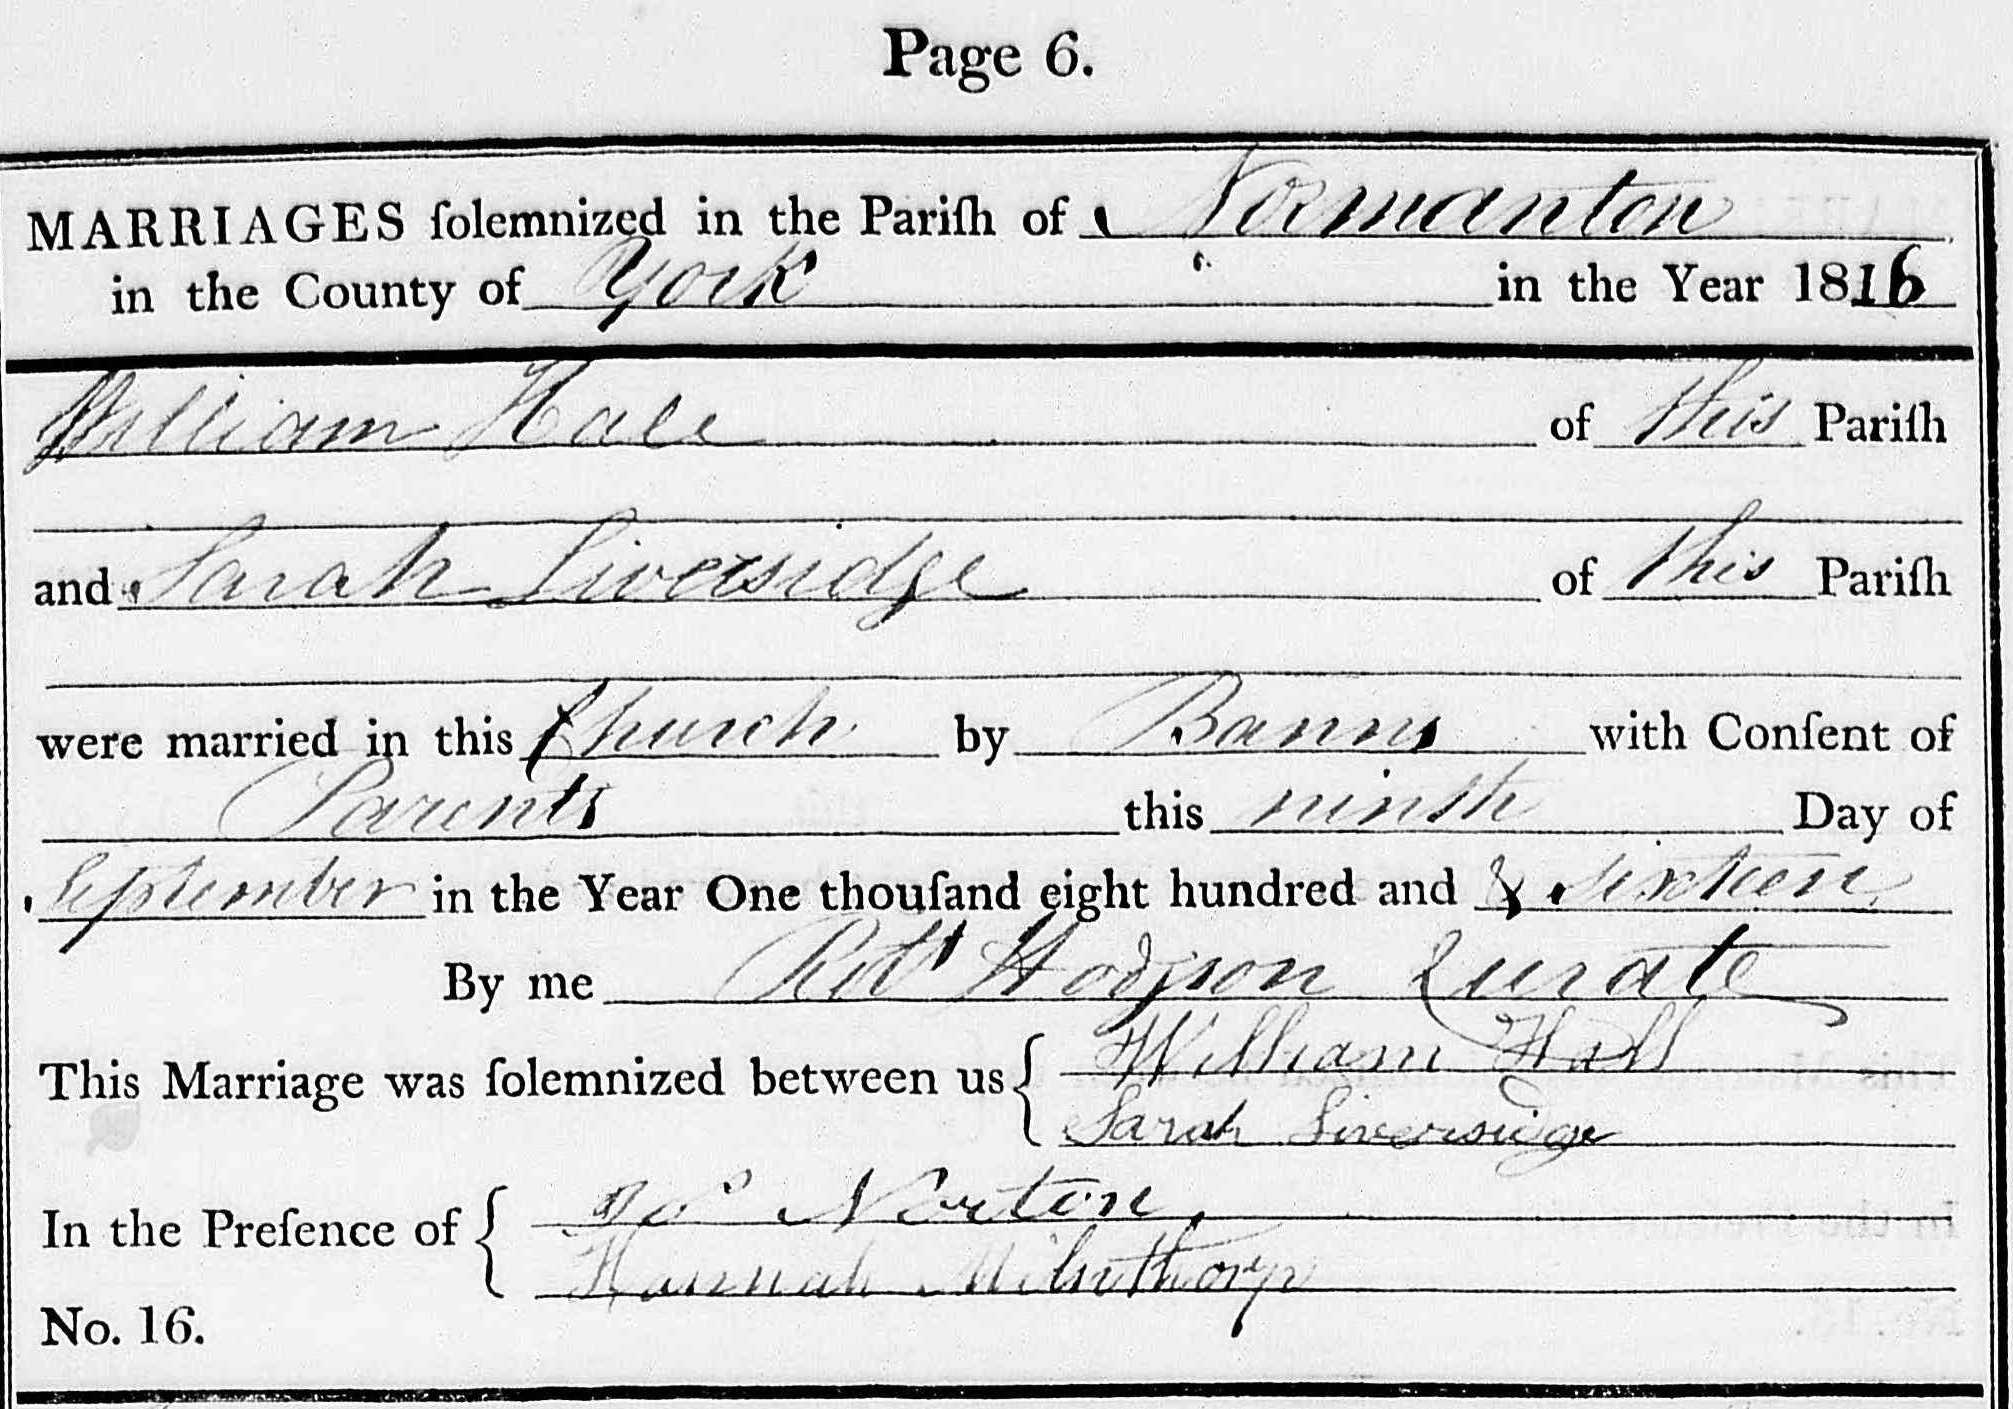 Page 6.
MARRIAGES ſolemnized in the Pariſh of Normanton
in the County of York in the Year 1816
William Hall of this Pariſh
and Sarah Liversidge of this Pariſh
were married in this Church by Banns with Conſent of
Parents this ninth Day of
September in the Year One thouſand eight hundred and sixteen
By me Robt Hodgson Curate
This Marriage was ſolemnized between us { William Hall
Sarah Liversidge
In the Preſence of { Norton
Hannah Milnthorp
No. 16.